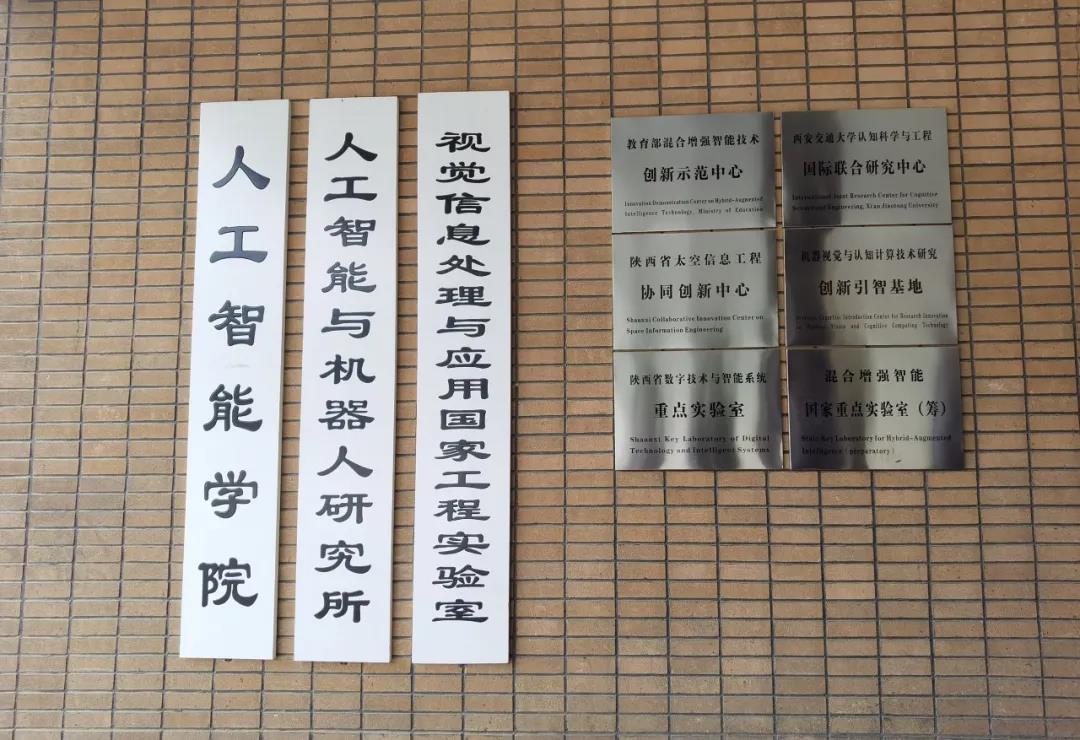 人工智能学院
人工智能与机器人研究所
视觉信息处理与应用国家工程实验室
教育部混合增强智能技术
创新示范中心
Innovation Demonstration Center on Hybrid-Augmented
Intelligence Technology, Ministry of Education
西安交通大学认知科学与工程
国际联合研究中心
International Joint Research Center for Cognitive
Science and Engineering, Xi'an Jiaotong University
陕西省太空信息工程
协同创新中心
Shaanxi Collaborative Innovation Center on
Space Information Engineering
机器视觉与认知计算技术研究
创新引智基地
Expertise Introduction Center for Research Innovation
Vision and Cognitive Computing Technology
陕西省数字技术与智能系统
重点实验室
Shaanxi Key Laboratory of Digital
Technology and Intelligent Systems
混合增强智能
国家重点实验室（筹）
State Key Laboratory for Hybrid-Augmented
Intelligence (preparatory)